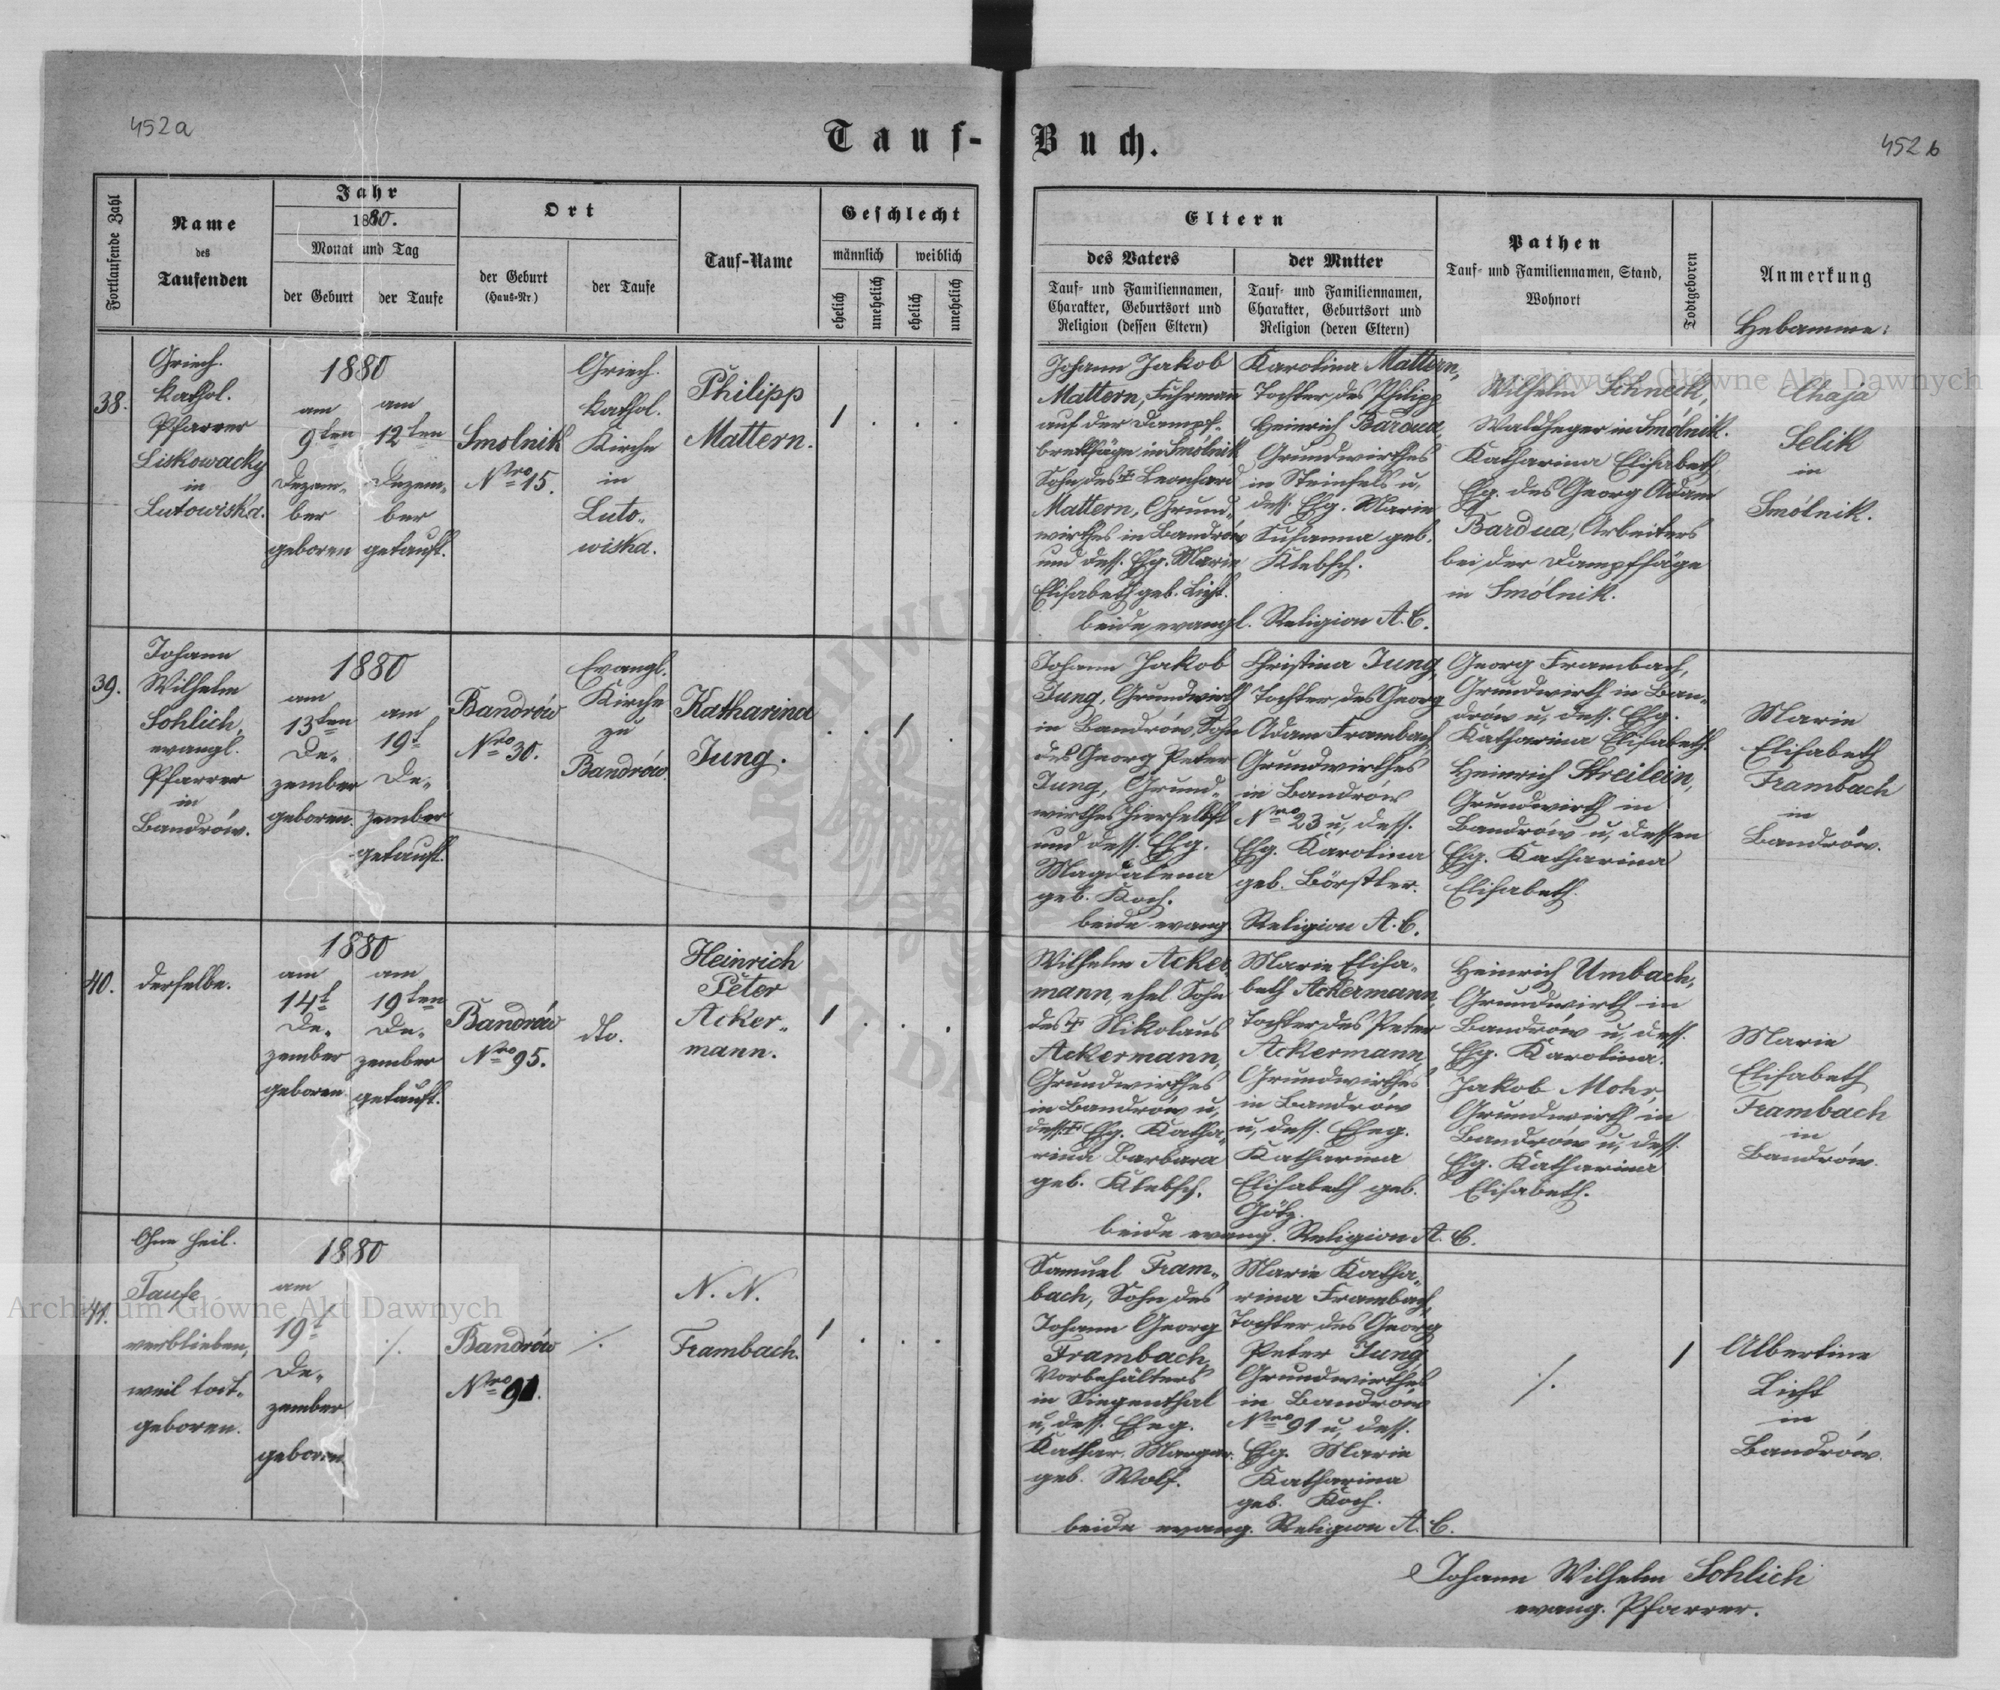 452a
452b
Tauf-Buch.
Fortlaufende Zahl
Name
des
Taufenden
Jahr
1880.
Monat und Tag
der Geburt
der Taufe
Ort
der Geburt
(Haus-Nr)
der Taufe
Tauf-Name
Geschlecht
männlich
weiblich
ehelich
unehelich
ehelich
unehelich
Eltern
des Vaters
Tauf- und Familiennamen,
Charakter, Geburtsort und
Religion (dessen Eltern)
der Mutter
Tauf- und Familiennamen,
Charakter, Geburtsort und
Religion (deren Eltern)
Pathen
Tauf- und Familiennamen, Stand,
Wohnort
Todtgeboren
Anmerkung
Hebamme:
38.
Griech.
kathol.
Pfarrer
Liskowacky
in
Lutowiska.
1880
am
9ten
Dezem-
ber
geboren
am
12ten
Dezem-
ber
getauft.
Smolnik
Nro 15.
Griech.
kathol.
Kirche
in
Luto-
wiska.
Philipp
Mattern.
1 . . .
Johann Jakob
Mattern, Fuhrmann
auf der Dampf-
brettsäge in Smólnik,
Sohn des † Leonhard
Mattern, Grund-
wirthes in Bandrów
und dess. Ehg. Marie
Elisabeth geb. Licht.
Karolina Mattern,
Tochter des Philipp
Heinrich Bardua,
Grundwirthes
in Steinfels u.
dess. Ehg. Marie
Susanna geb.
Klebsch.
beide evangl. Religion A. C.
Wilhelm Schneck,
Waldheger in Smólnik.
Katharina Elisabeth,
Ehg. des Georg Adam
Bardua, Arbeiters
bei der Dampfsäge
in Smólnik.
Chaja
Selik
in
Smólnik.
39.
Johann
Wilhelm
Sohlich,
evangl.
Pfarrer
in
Bandrów.
1880
am
13ten
De-
zember
geboren.
am
19t
De-
zember
getauft.
Bandrów
Nro 30.
Evangl.
Kirche
zu
Bandrów.
Katharina
Jung.
. . 1 .
Johann Jakob
Jung, Grundwirth
in Bandrów, Sohn
des Georg Peter
Jung, Grund-
wirthes hierselbst
und dess. Ehg.
Magdalena
geb. Koch.
Christina Jung,
Tochter des Georg
Adam Frambach,
Grundwirthes
in Bandrów
Nro 23 u. dess.
Ehg. Karolina
geb. Börstler.
beide evang. Religion A. C.
Georg Frambach,
Grundwirth in Ban-
drów u. dess. Ehg.
Katharina Elisabeth.
Heinrich Streilein,
Grundwirth in
Bandrów u. dessen
Ehg. Katharina
Elisabeth.
Marie
Elisabeth
Frambach
in
Bandrów.
40.
derselbe.
1880
am
14t
De-
zember
geboren
am
19ten
De-
zember
getauft.
Bandrów
Nro 95.
dto.
Heinrich
Peter
Acker-
mann.
1 . . .
Wilhelm Acker-
mann, ehel. Sohn
des † Nikolaus
Ackermann,
Grundwirthes
in Bandrów u.
dess. † Ehg. Katha-
rina Barbara
geb. Klebsch.
Marie Elisa-
beth Ackermann,
Tochter des Peter
Ackermann,
Grundwirthes
in Bandrów
u. dess. Eheg.
Katharina
Elisabeth geb.
Götz.
beide evang. Religion A. C.
Heinrich Umbach,
Grundwirth in
Bandrów u. dess.
Ehg. Karolina.
Jakob Mohr,
Grundwirth in
Bandrów u. dess.
Ehg. Katharina
Elisabeth.
Marie
Elisabeth
Frambach
in
Bandrów.
41.
Ohne heil.
Taufe
verblieben,
weil tot-
geboren.
1880
am
19t
De-
zember
geboren
./.
Bandrów
Nro 91.
./.
N. N.
Frambach.
1 . . .
Samuel Fram-
bach, Sohn des
Johann Georg
Frambach,
Vorbehälters
in Siegenthal
u. dess. Eheg.
Kathar. Margar.
geb. Wolf.
Marie Katha-
rina Frambach,
Tochter des Georg
Peter Jung
Grundwirthes
in Bandrów
Nro 91 u. dess.
Ehg. Marie
Katharina
geb. Koch.
beide evang. Religion A. C.
./.
1
Albertine
Licht
in
Bandrów.
Johann Wilhelm Sohlich
evang. Pfarrer.
Archiwum Główne Akt Dawnych
Archiwum Główne Akt Dawnych